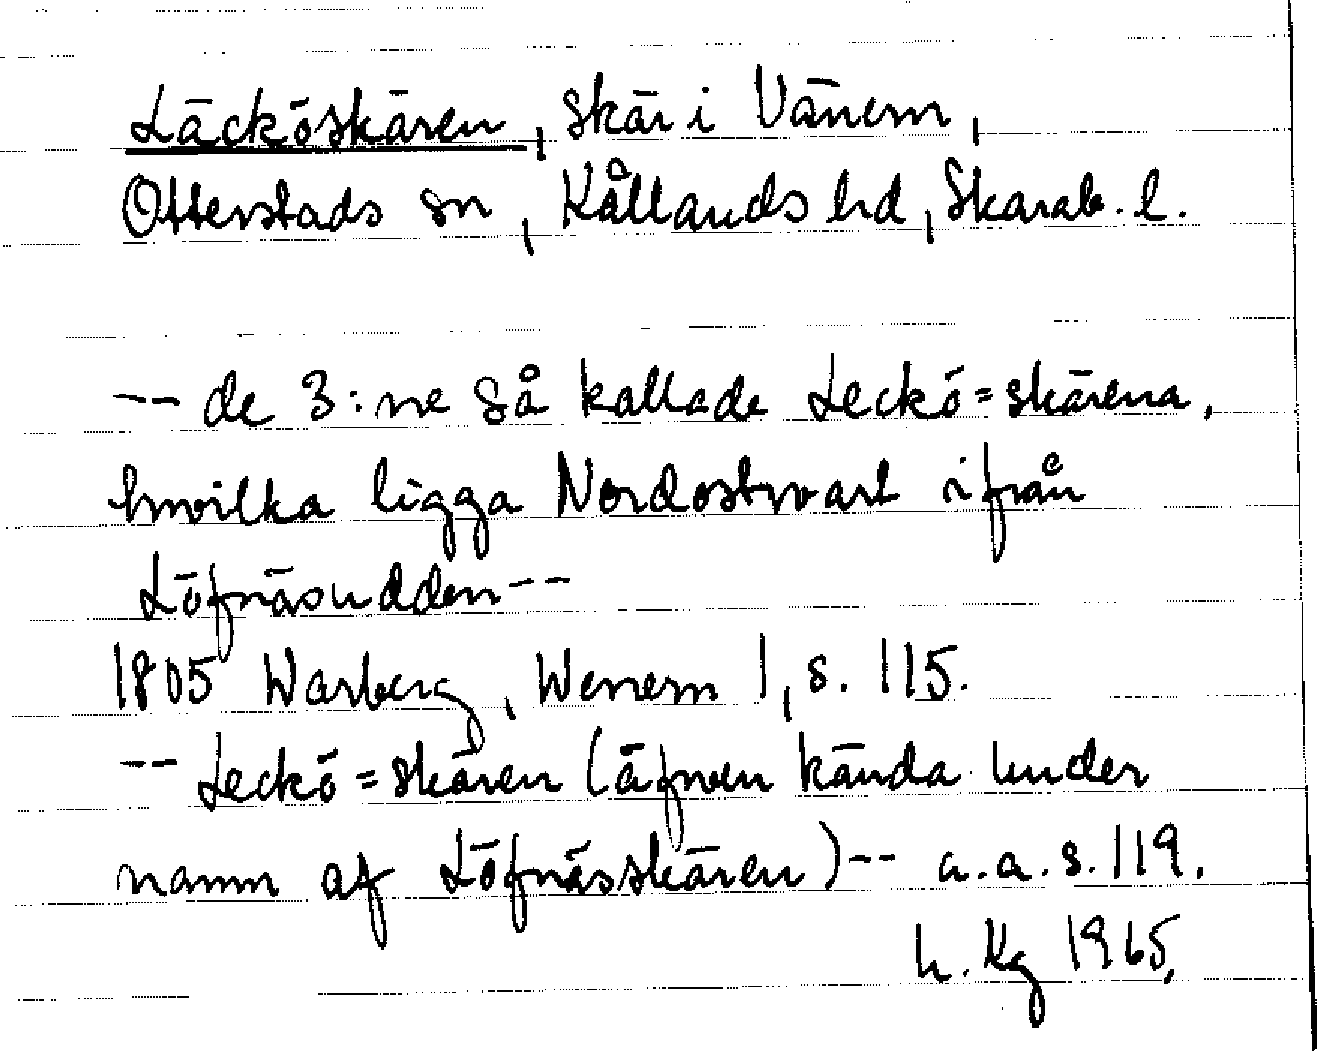 Läcköskären, skär i Vänern,
Otterstads sn, Kållands hd, Skarab. l.
-- de 3:ne så kallade Leckö=skärena,
hvilka ligga Nordostvart ifrån
Löfnäsudden --
1805 Warberg, Wenern 1, s. 115.
-- Leckö=skären (äfven kända under
namn af Löfnässkären) -- a.a. s. 119.
h. Kg 1965.